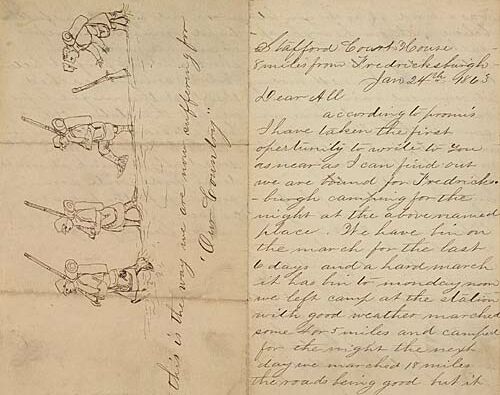 this is the way we are now suffering for
"Our Country"
Stafford Court House
8 miles from Fredricksburgh
Jan 24th 1863
Dear All
according to promis
I have taken the first
opertunity to write to you
as near as I can find out
we are bound for Fredricks-
burgh camping for the
night at the above named
place. We have bin on
the march for the last
6 days and a hard march
it has bin to monday non
we left camp at the station
with good weather marched
some 4 or 5 miles and camped
for the night the next
day we marched 18 miles
the roads being good but it